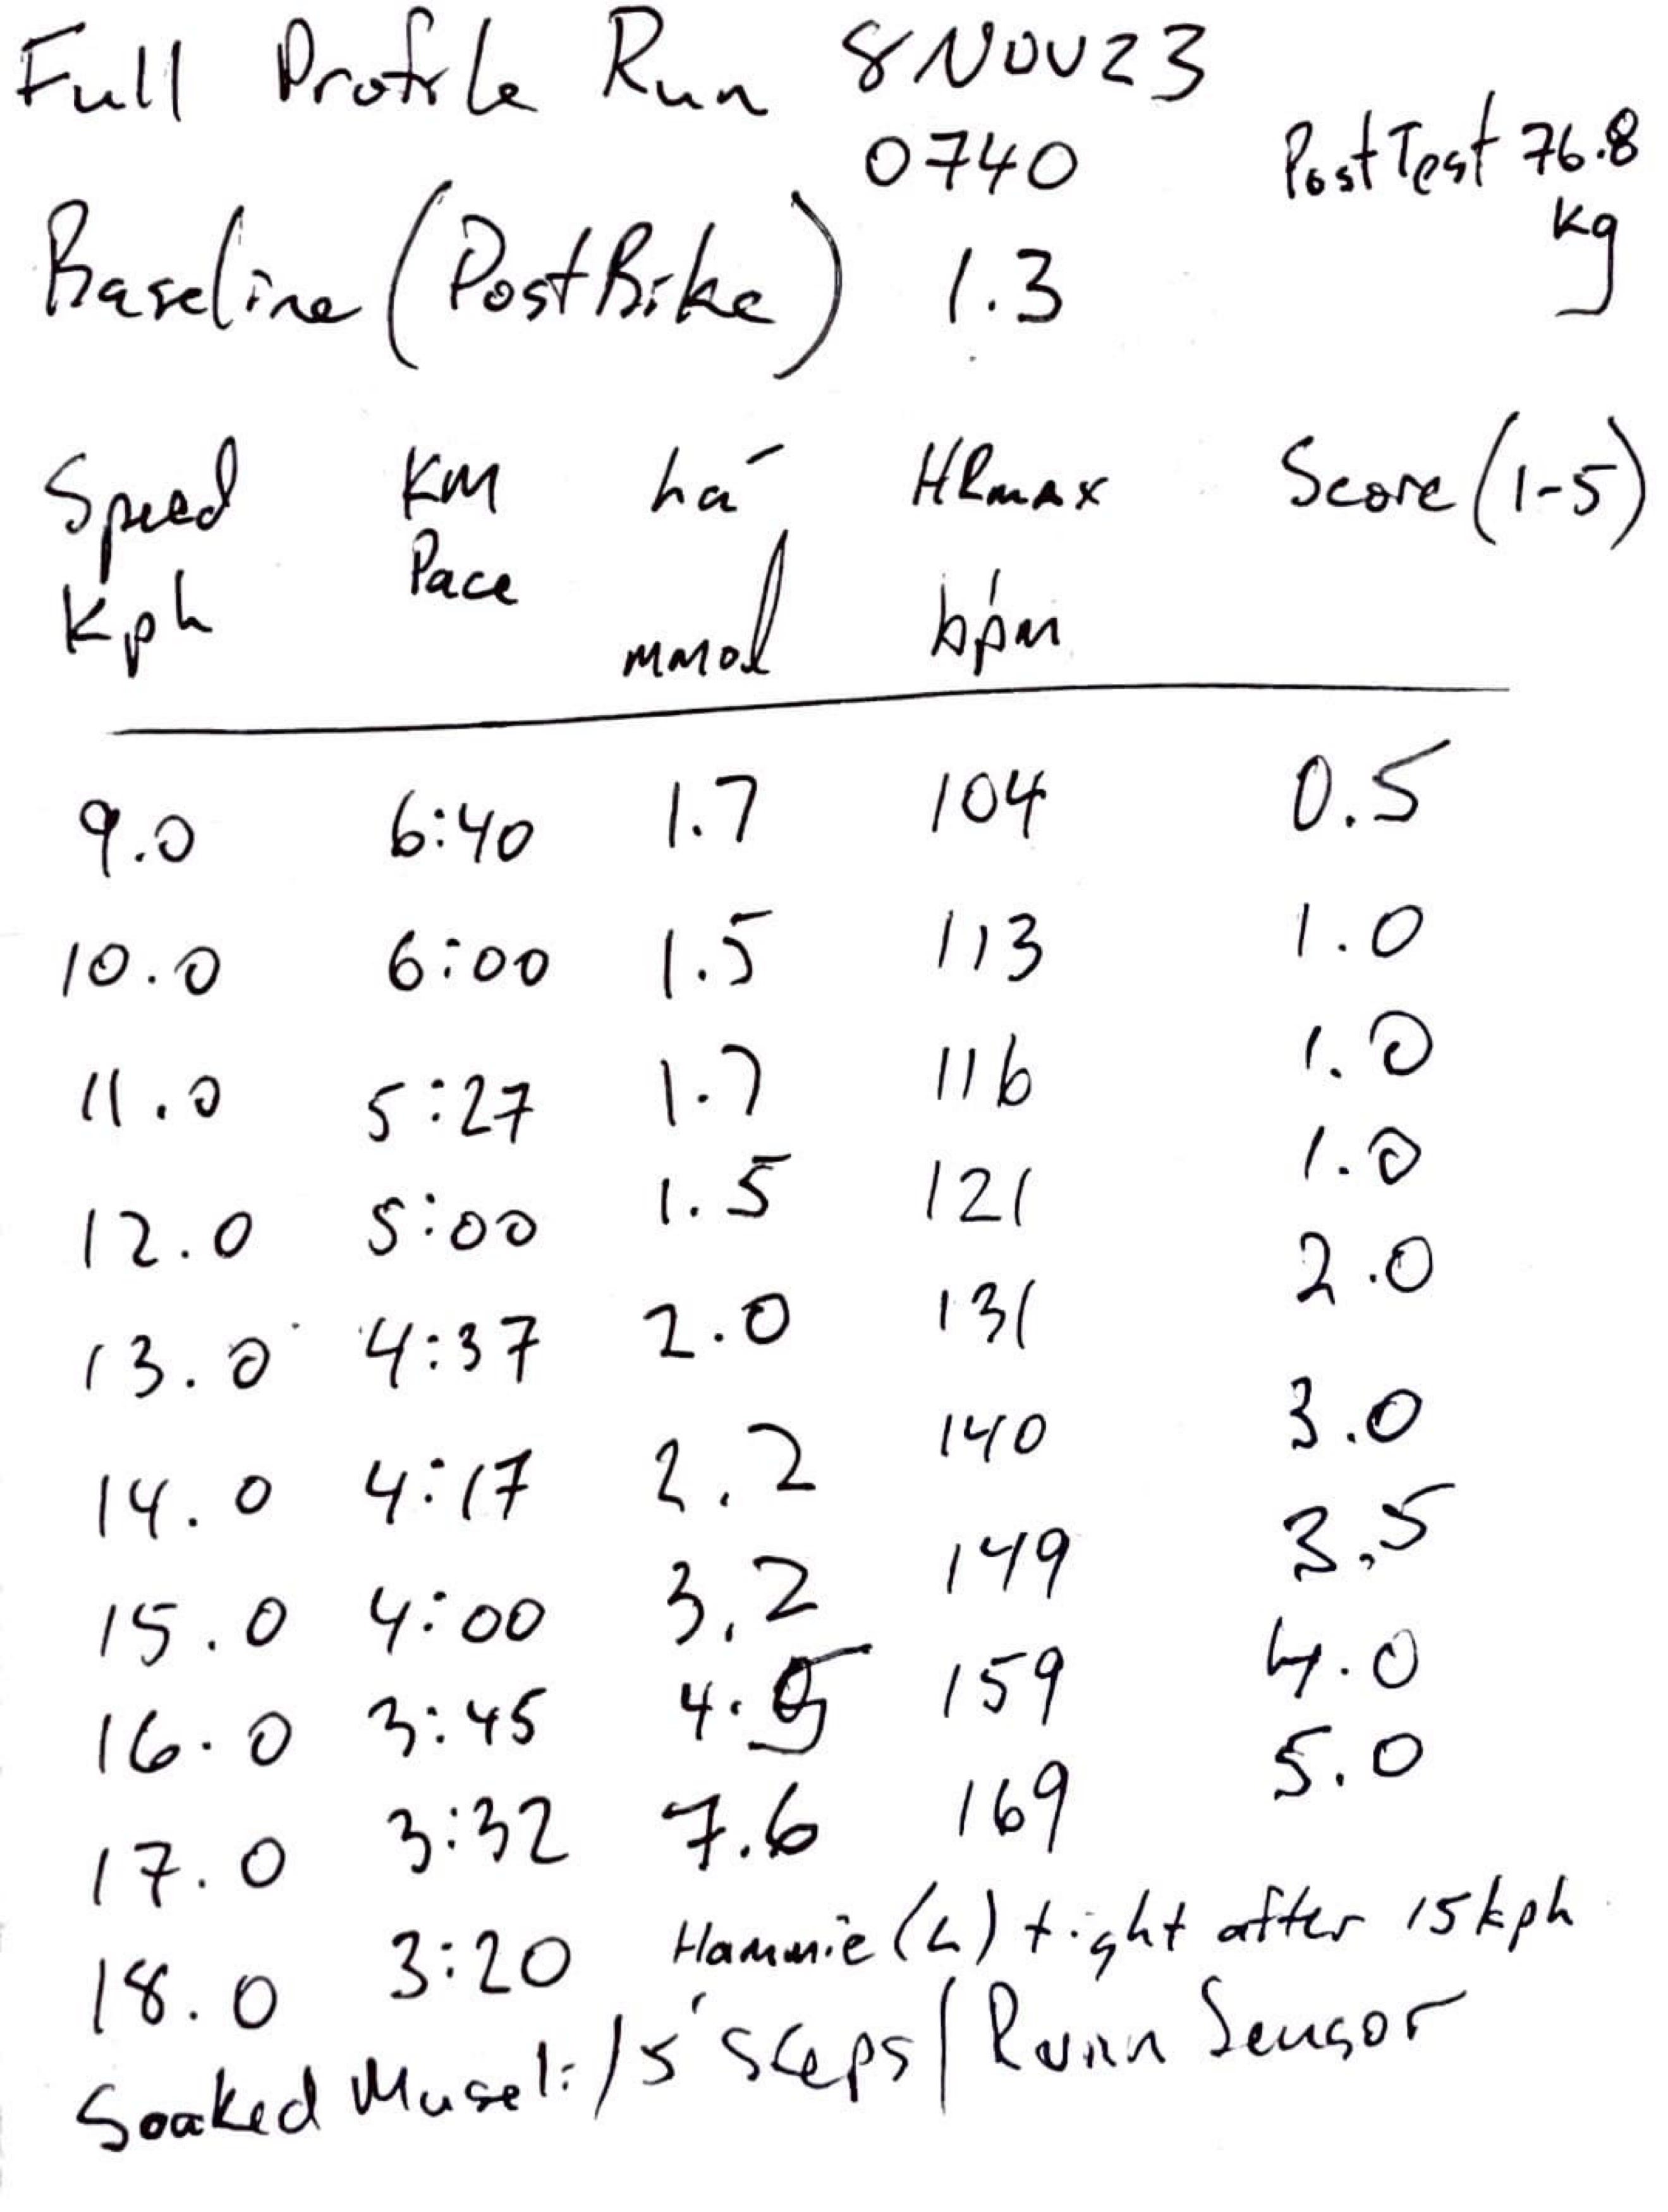 Full Profile Run 8NOV23
0740
Post Test 76.8
kg
Baseline (Post Bike) 1.3
Speed KM La- HRmax Score (1-5)
Kph Pace mmol bpm
9.0 6:40 1.7 104 0.5
10.0 6:00 1.5 113 1.0
11.0 5:27 1.7 116 1.0
12.0 5:00 1.5 121 1.0
13.0 4:37 2.0 131 2.0
14.0 4:17 2.2 140 3.0
15.0 4:00 3.2 149 3.5
16.0 3:45 4.5 159 4.0
17.0 3:32 7.6 169 5.0
18.0 3:20 Hammie (L) tight after 15kph
Soaked Museli / 5' Steps / Runn Sensor